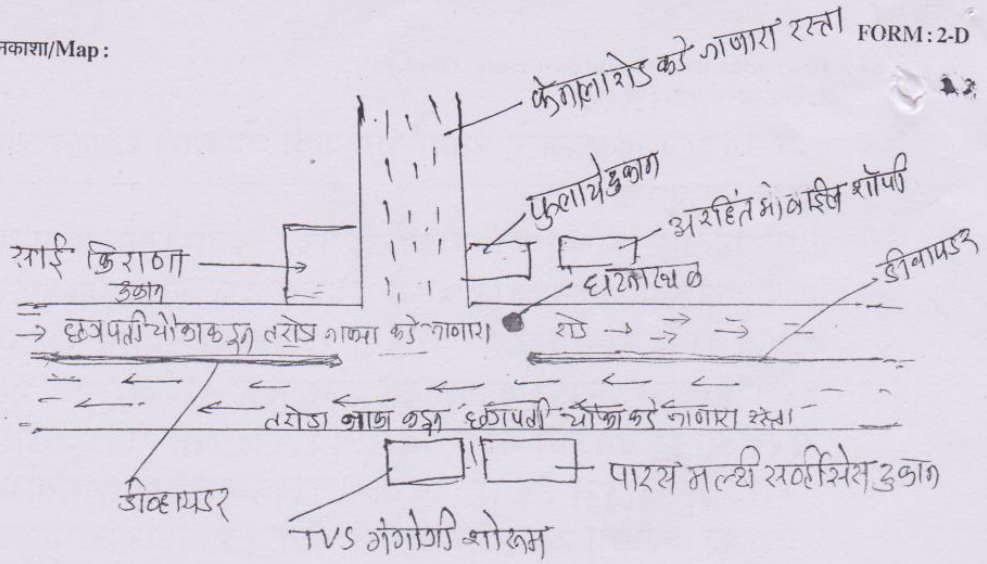 नकाशा/Map :
FORM : 2-D
कॅनाल रोड कडे जाणारा रस्ता
फुलाचे दुकान
अरहित मोबाईल शॉपी
साई किराणा
दुकान
घटनास्थळ
डीवायडर
छत्रपती चौकाकडुन तरोडा नाका कडे जाणारा रोड
तरोडा नाका कडुन छत्रपती चौका कडे जाणारा रस्ता
डीव्हायडर
पारस मल्टी सर्व्हीसेस दुकान
TVS गंगोत्री शोरूम